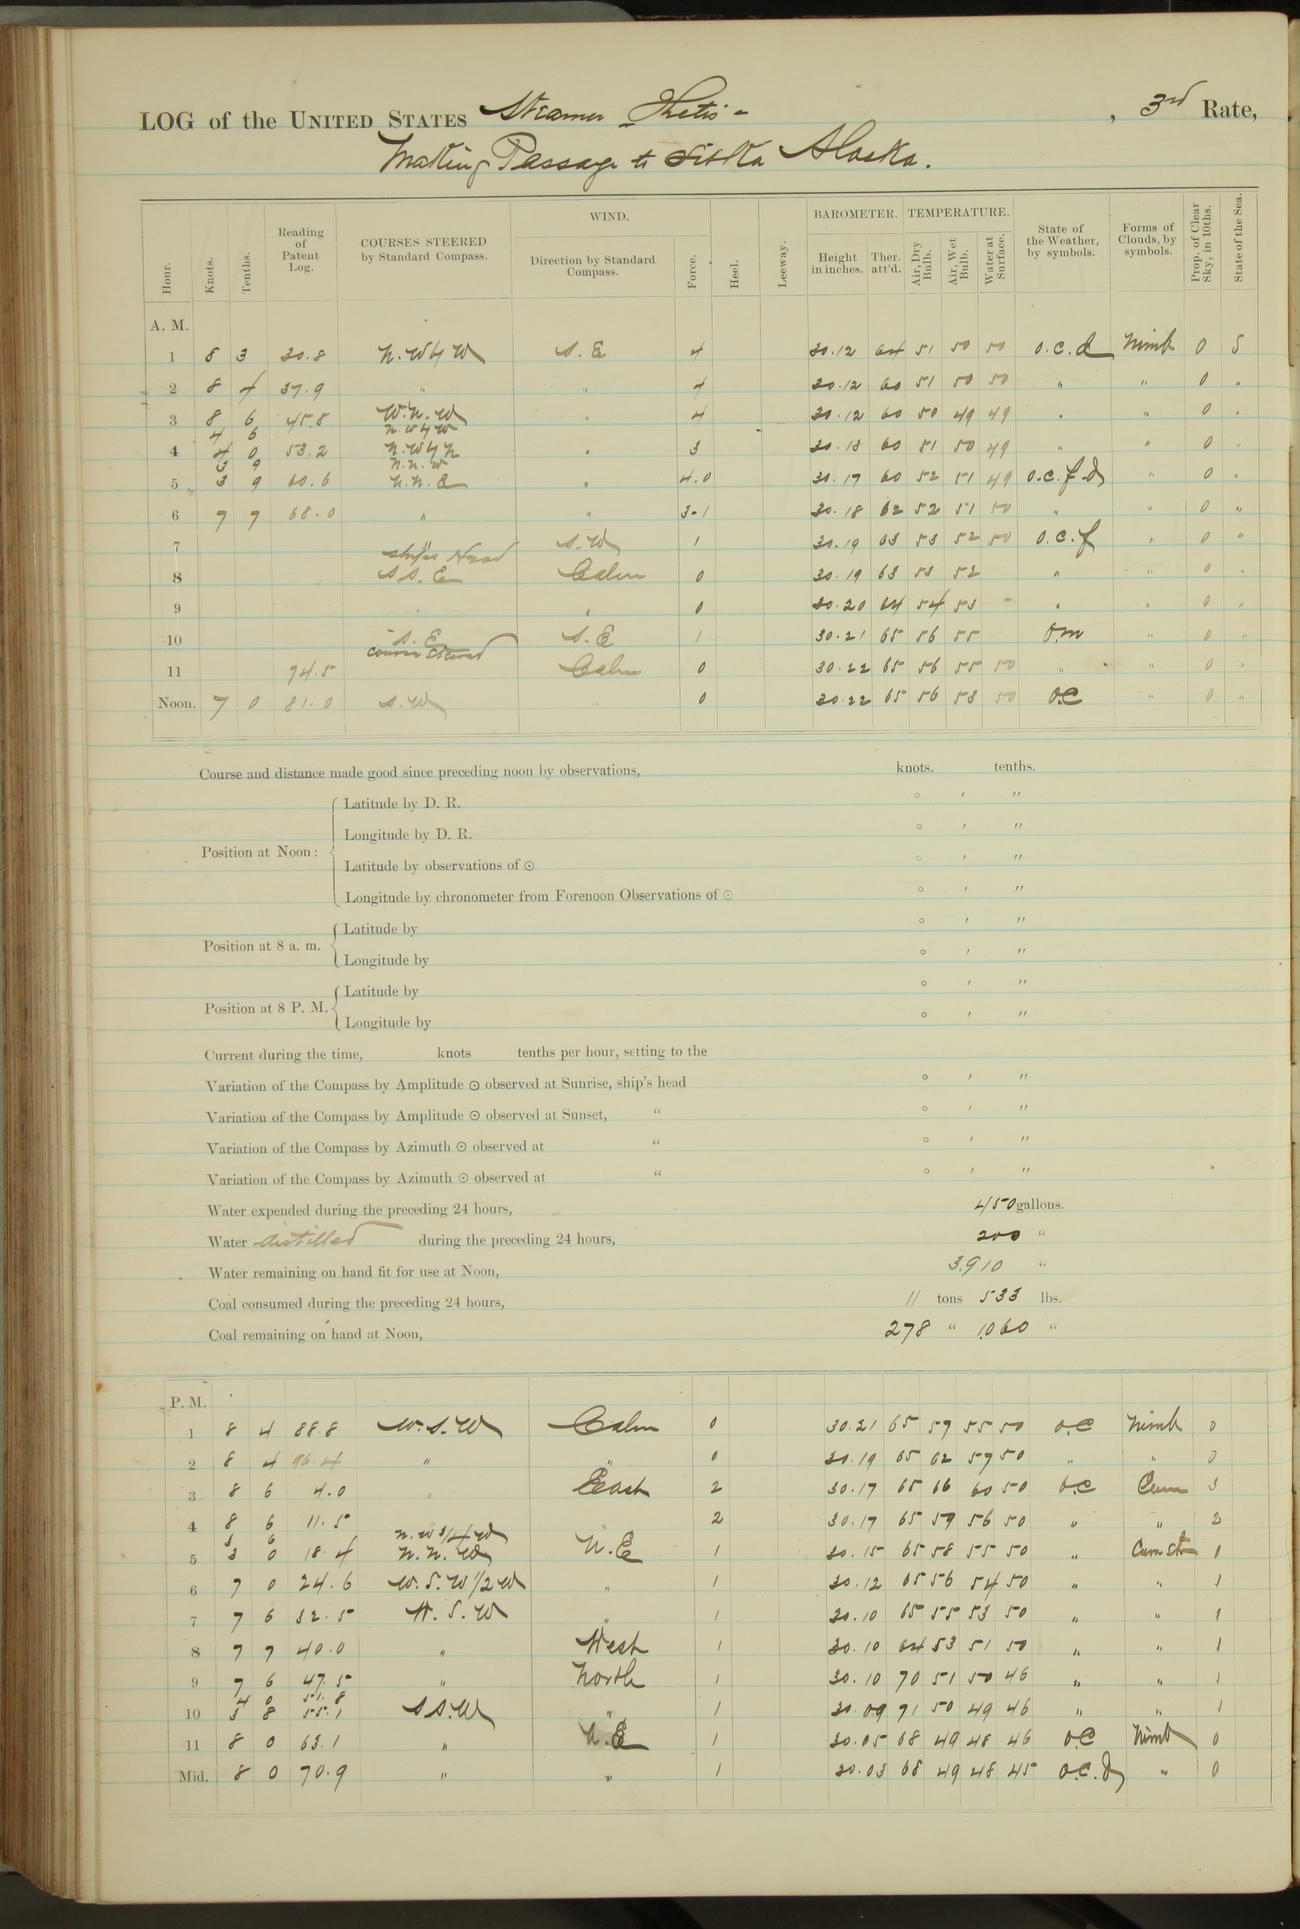 LOG of the UNITED STATES Steamer Thetis , 3rd Rate,
Making Passage to Sitka Alaska.
Hour. Knots. Tenths. Reading of Patent Log. COURSES STEERED by Standard Compass. WIND. Direction by Standard Compass. Force. Heel. Leeway. BAROMETER. Height in inches. Ther. att'd. TEMPERATURE. Air, Dry Bulb. Air, Wet Bulb. Water at Surface. State of the Weather, by symbols. Forms of Clouds, by symbols. Prop. of Clear Sky, in 10ths. State of the Sea.
A. M.
1 8 3 30.8 N.W by W S.E 4 30.12 64 51 50 50 o.c.d Nimb 0 S
2 8 4 37.9 " " 4 30.12 60 51 50 50 " " 0 "
3 8 6 45.8 W.N.W " 4 30.12 60 50 49 49 " " 0 "
4 6 N.W by W
4 4 0 53.2 N.W by N " 3 30.13 60 51 50 49 " " 0 "
3 9 N.N.W
5 3 9 60.6 N.N.E " 4.0 30.17 60 52 51 49 o.c.f.d " 0 "
6 7 7 68.0 " " 3-1 30.18 62 52 51 50 " " 0 "
7 " S.W 1 30.19 63 53 52 50 o.c.f " 0 "
ships Head
8 S.S.E Calm 0 30.19 63 53 52 " " 0 "
9 " " 0 30.20 64 54 53 " " 0 "
10 S.E S.E 1 30.21 65 56 55 o.m " 0 "
course steered
11 94.5 Calm 0 30.22 65 56 55 50 " " 0 "
Noon. 7 0 81.0 S.W " 0 30.22 65 56 53 50 o.c " 0 "
Course and distance made good since preceding noon by observations, knots. tenths.
Position at Noon: Latitude by D. R. ° ′ ″
Longitude by D. R. ° ′ ″
Latitude by observations of ☉ ° ′ ″
Longitude by chronometer from Forenoon Observations of ☉ ° ′ ″
Position at 8 a. m. Latitude by ° ′ ″
Longitude by ° ′ ″
Position at 8 P. M. Latitude by ° ′ ″
Longitude by ° ′ ″
Current during the time, knots tenths per hour, setting to the
Variation of the Compass by Amplitude ☉ observed at Sunrise, ship's head ° ′ ″
Variation of the Compass by Amplitude ☉ observed at Sunset, " ° ′ ″
Variation of the Compass by Azimuth ☉ observed at " ° ′ ″
Variation of the Compass by Azimuth ☉ observed at " ° ′ ″
Water expended during the preceding 24 hours, 450 gallons.
Water distilled during the preceding 24 hours, 200 "
Water remaining on hand fit for use at Noon, 3.910 "
Coal consumed during the preceding 24 hours, 11 tons 533 lbs.
Coal remaining on hand at Noon, 278 " 1060 "
P. M.
1 8 4 88.8 W.S.W Calm 0 30.21 65 59 55 50 o.c Nimb 0
2 8 4 96.4 " " 0 30.19 65 62 57 50 " " 0
3 8 6 4.0 " East 2 30.17 65 66 60 50 o.c Cum 3
4 8 6 11.5 " 2 30.17 65 59 56 50 " " 2
3 6 N.W 3/4 W
5 3 0 18.4 N.N.W N.E 1 30.15 65 58 55 50 " Cum Str 1
6 7 0 24.6 W.S.W 1/2 W " 1 30.12 65 56 54 50 " " 1
7 7 6 32.5 W.S.W " 1 30.10 65 55 53 50 " " 1
8 7 7 40.0 " West 1 30.10 64 53 51 50 " " 1
9 7 6 47.5 " North 1 30.10 70 51 50 46 " " 1
4 0 51.8
10 3 8 55.1 S.S.W " 1 30.09 71 50 49 46 " " 1
11 8 0 63.1 " N.E 1 30.05 68 49 48 46 o.c Nimb 0
Mid. 8 0 70.9 " " 1 30.03 68 49 48 45 o.c.d " 0